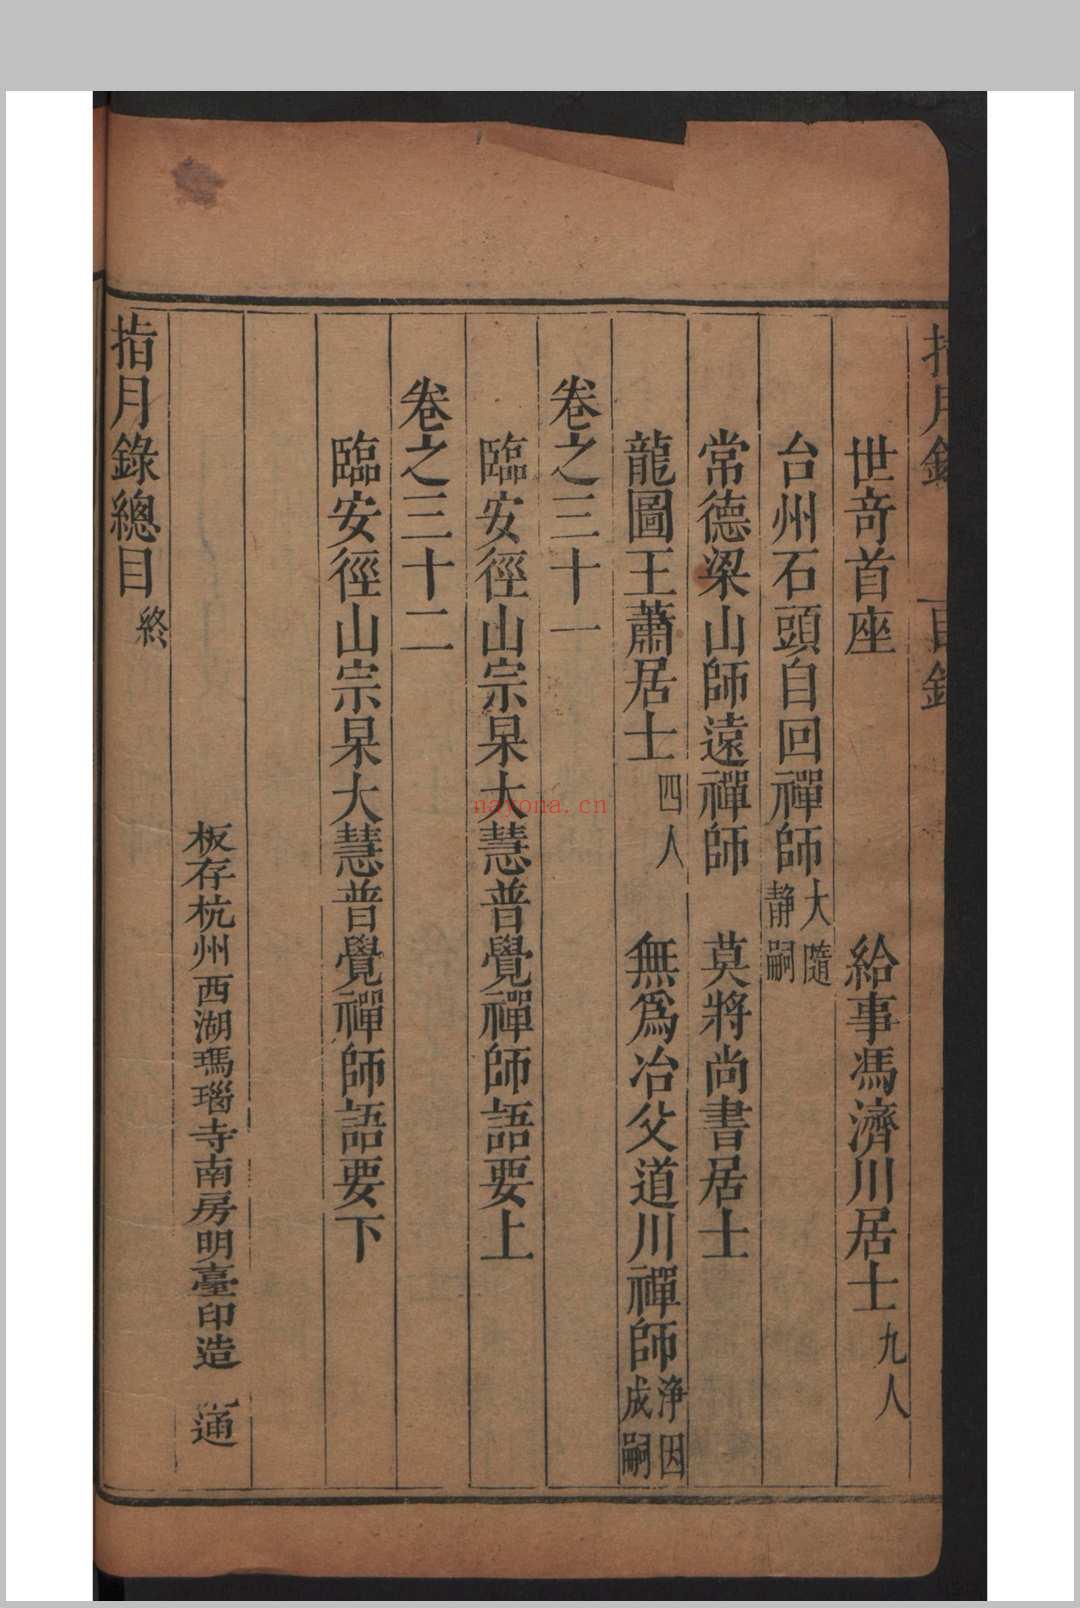 指月錄　目錄
世奇首座　給事馮濟川居士 九人
台州石頭自回禪師 大隨靜嗣
常德梁山師遠禪師　莫將尚書居士
龍圖王蕭居士 四人　無爲冶父道川禪師 淨因成嗣
卷之三十一
臨安徑山宗杲大慧普覺禪師語要上
卷之三十二
臨安徑山宗杲大慧普覺禪師語要下
板存杭州西湖瑪瑙寺南房明臺印造　通
指月錄總目 終
nayona.cn